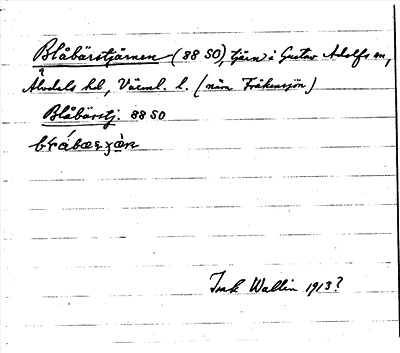 Blåbärstjärnen (88 SO), tjärn i Gustav Adolfs sn,
Älvdals hd, Värml. l. (nära Fräkensjön)
Blåbärstj. 88 SO
Ink Wallin 1913?